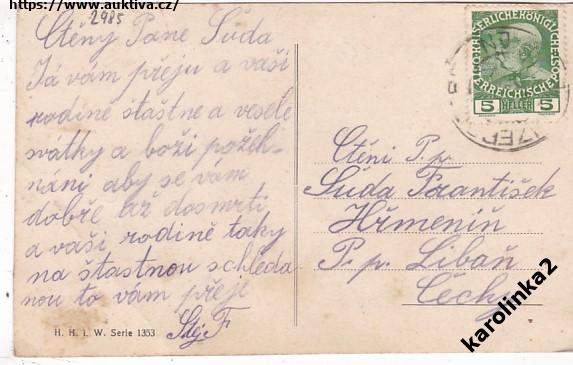 https://www.auktiva.cz/
2985
Ctěny Pane Suda
Já vám přeju a vaši
rodině štastne a vesele
svátky a boži požeh-
náni aby se vám
dobře až dosmrti
a vaši rodině taky
na štastnou schleda
nou to vám přeje
F
H. H. i. W. Serie 1353
KAISERLICHE KÖNIGLICHE
ÖSTERREICHISCHE POST
5 HELLER 5
Ctěni P. p.
Suda František
Hřmenín
P. p. Libaň
Čechy
karolinka2